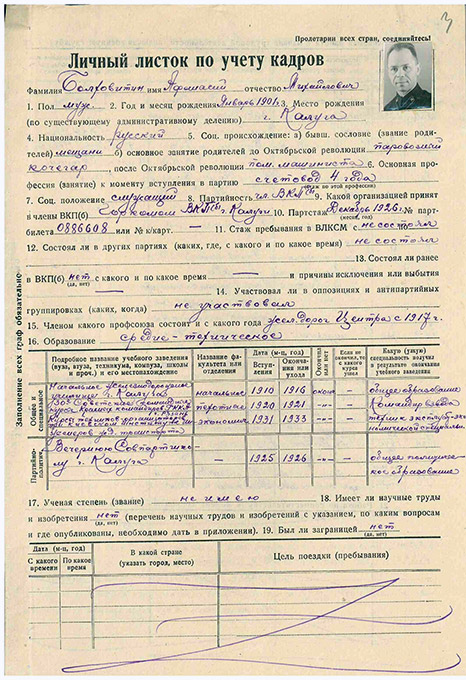 3
Пролетарии всех стран, соединяйтесь!
Личный листок по учету кадров
Фамилия Болховитин имя Афанасий отчество Михайлович
1. Пол муж. 2. Год и месяц рождения Январь 1901 г. 3. Место рождения
(по существующему административному делению) г. Калуга
4. Национальность русский 5. Соц. происхождение: а) бывш. сословие (звание роди-
телей) мещане б) основное занятие родителей до Октябрьской революции паровозный
кочегар, после Октябрьской революции пом. машиниста 6. Основная про-
фессия (занятие) к моменту вступления в партию счетовод 4 года
(стаж по этой профессии)
7. Соц. положение служащий 8. Партийность чл. ВКПб 9. Какой организацией принят
в члены ВКП(б) Горкомом ВКПб г. Калуги 10. Партстаж Декабрь 1926 г. № парт-
(месяц, год)
билета 0886608 или № к/карт. — 11. Стаж пребывания в ВЛКСМ с не состоял
12. Состоял ли в других партиях (каких, где, с какого и по какое время) не состоял
13. Состоял ли ранее
в ВКП(б) нет с какого и по какое время — и причины исключения или выбытия
(да, нет)
— 14. Участвовал ли в оппозициях и антипартийных
группировках (каких, когда) не участвовал
15. Членом какого профсоюза состоит и с какого года жел. дорог Центра с 1917 г.
16. Образование средне-техническое
Заполнение всех граф обязательно
Подробное название учебного заведения (вуза, втуза, техникума, комвуза, школы и проч.) и его местонахождение
Название факультета или отделения
Дата (м-ц, год)
Вступления
Окончания или ухода
Окончил или нет
Если не окончил, то с какого курса ушел
Какую (узкую) специальность получил в результате окончания учебного заведения
Общее и специальное
Начальное железнодорожное училище г. Калуга начальное 1910 1916 общее образование
1920 1921 Командир взвода
1931 1933
Партийно-политич.
Вечернюю Совпартшколу г. Калуга — 1925 1926 — общее политическое образование
17. Ученая степень (звание) не имею 18. Имеет ли научные труды
и изобретения нет (перечень научных трудов и изобретений с указанием, по каким вопросам
(да, нет)
и где опубликованы, необходимо дать в приложении). 19. Был ли заграницей нет
(да, нет)
Дата (м-ц, год)
С какого времени
По какое время
В какой стране
(указать город, место)
Цель поездки (пребывания)